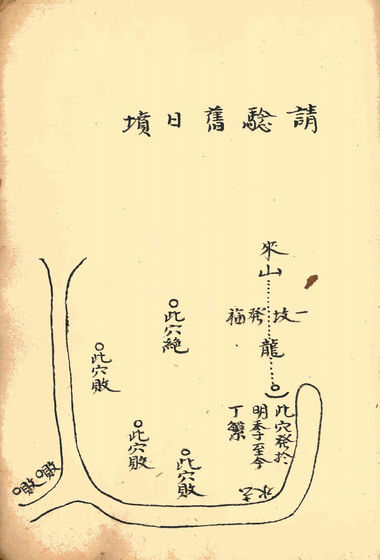 請騐舊日墳
來山
龍
一坟發福
此穴發於
明季至今
丁繁
此穴絕
此穴敗
此穴敗
此穴敗
敗
敗